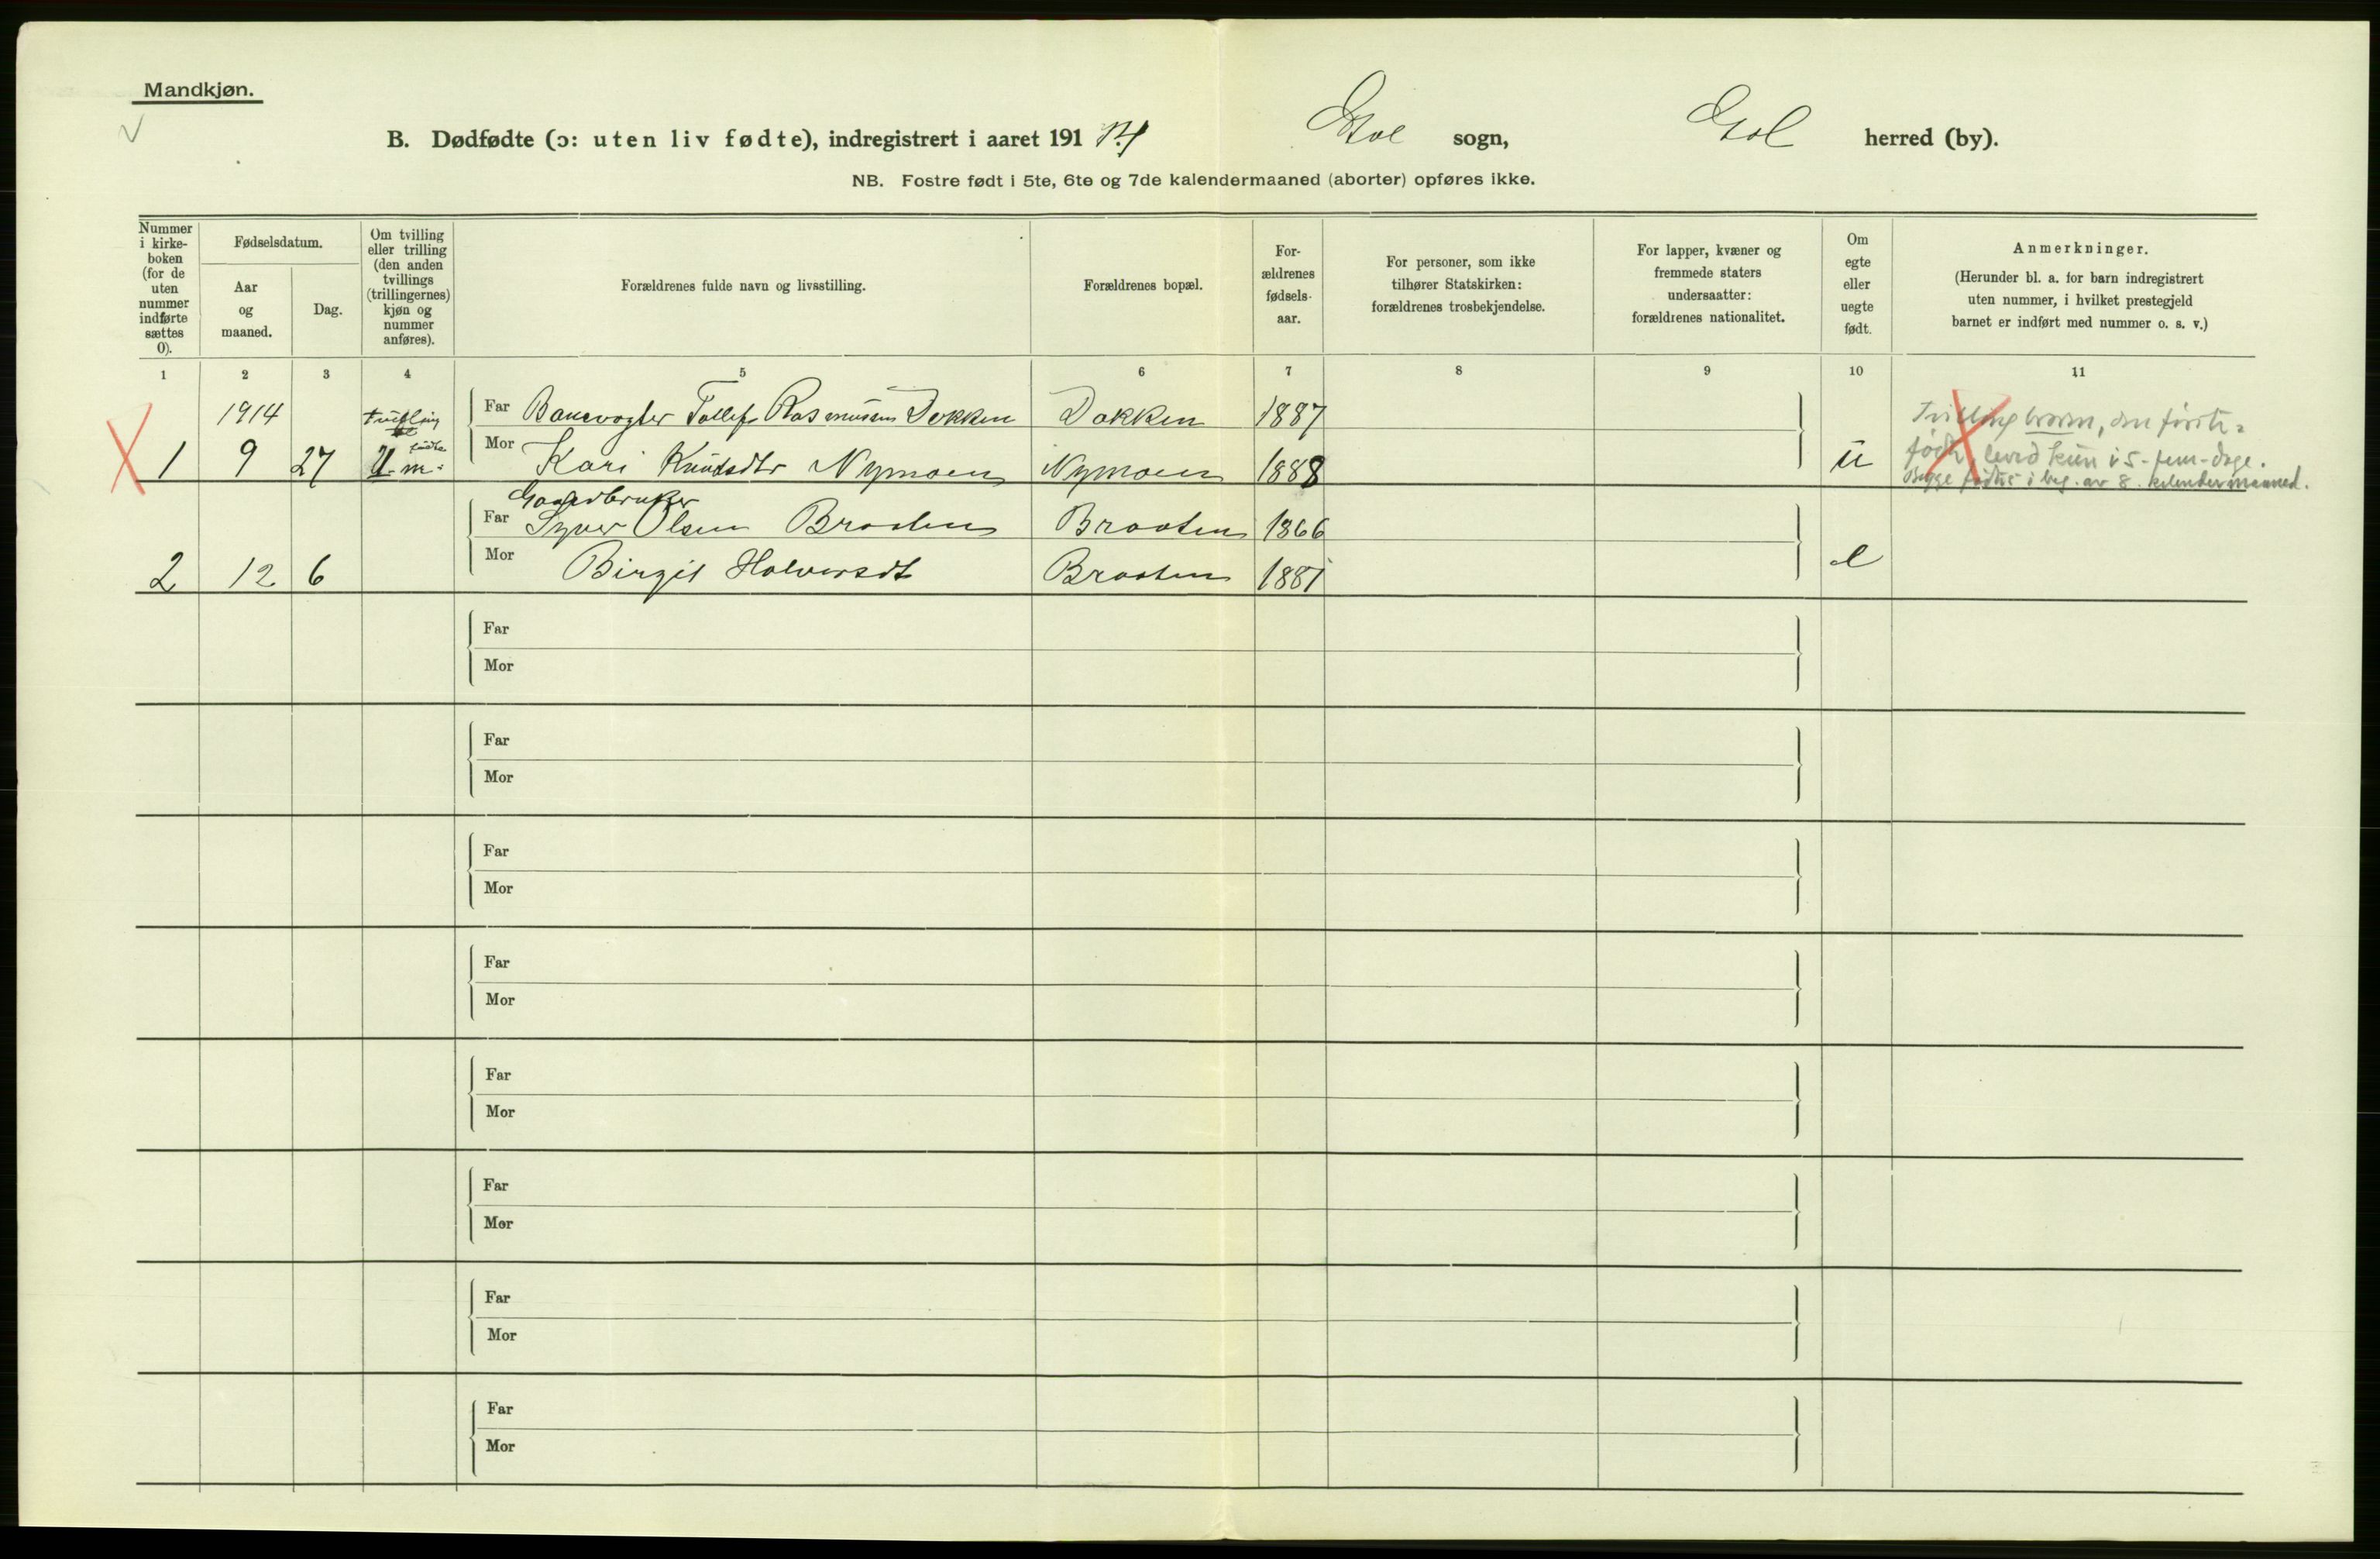 Mandkjøn.
B. Dødfødte (ɔ: uten liv fødte), indregistrert i aaret 1914 Gol sogn, Gol herred (by).
NB. Fostre født i 5te, 6te og 7de kalendermaaned (aborter) opføres ikke.
Nummer
i kirke-
boken
(for de
uten
nummer
indførte
sættes
0).
Fødselsdatum.
Aar
og
maaned.
Dag.
Om tvilling
eller trilling
(den anden
tvillings
(trillingernes)
kjøn og
nummer
anføres).
Forældrenes fulde navn og livsstilling.
Forældrenes bopæl.
For-
ældrenes
fødsels-
aar.
For personer, som ikke
tilhører Statskirken:
forældrenes trosbekjendelse.
For lapper, kvæner og
fremmede staters
undersaatter:
forældrenes nationalitet.
Om
egte
eller
uegte
født.
Anmerkninger.
(Herunder bl. a. for barn indregistrert
uten nummer, i hvilket prestegjeld
barnet er indført med nummer o. s. v.)
1 2 3 4 5 6 7 8 9 10 11
1914 tvilling Far Banevogter Tollef Rasmussen Dokken Dokken 1887
1 9 27 m. Mor Kari Knudsdtr Nymoen Nymoen 1888 u
Tvilling barn, den første
født, leved kun i 5-fem-dage.
Begge fødtes i beg. av 8. kalendermaaned.
Gaardbruker
Far Syver Olsen Braaten Braaten 1866
2 12 6 Mor Birgit Halvorsdt Braaten 1881 e
Far
Mor
Far
Mor
Far
Mor
Far
Mor
Far
Mor
Far
Mor
Far
Mor
Far
Mor